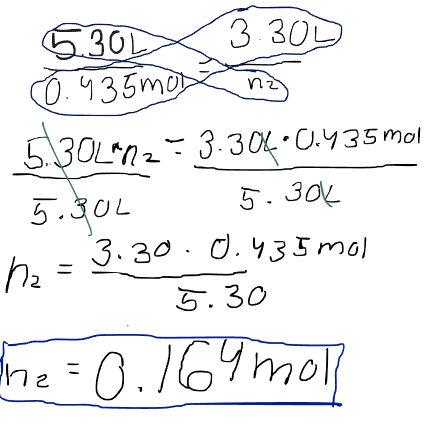 5.30L / 0.435mol = 3.30L / n₂
5.30L · n₂ / 5.30L = 3.30L · 0.435mol / 5.30L
n₂ = 3.30 · 0.435mol / 5.30
n₂ = 0.164mol